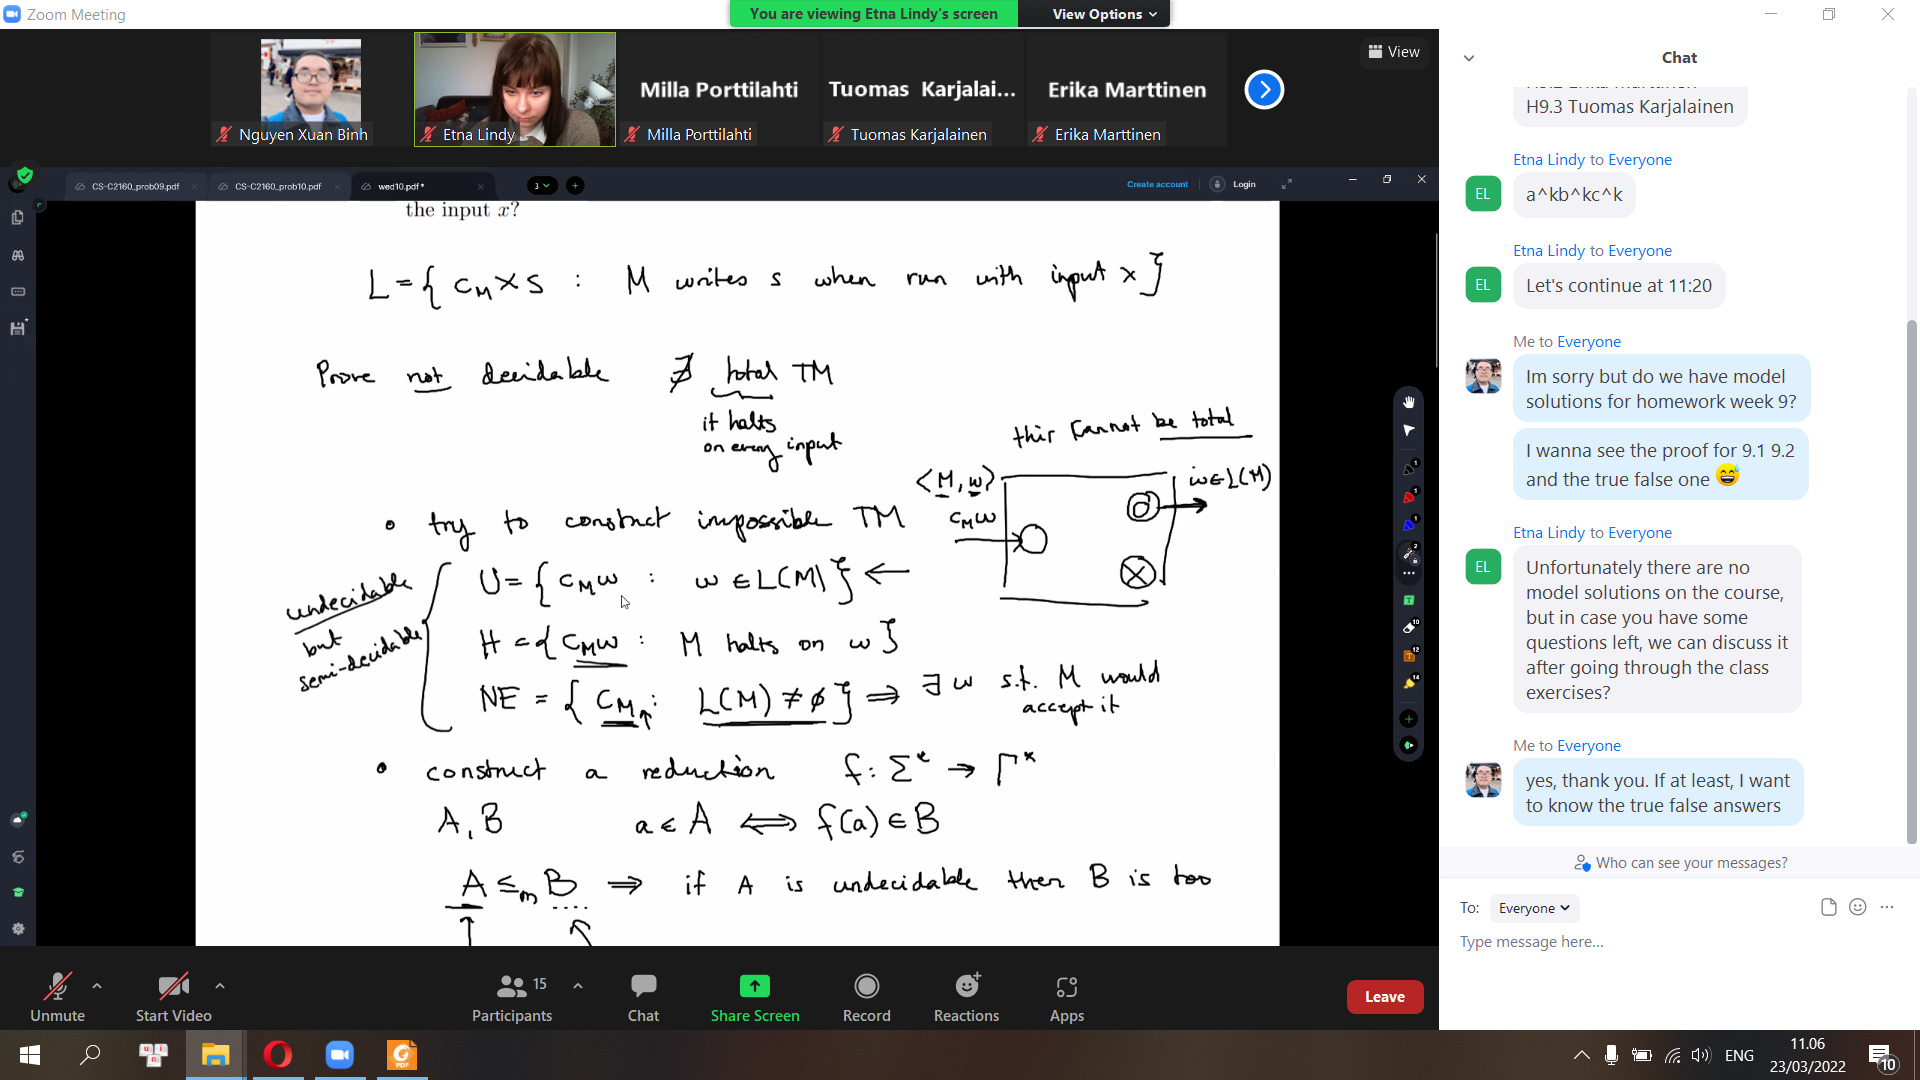 Zoom Meeting
You are viewing Etna Lindy's screen
View Options
View
Milla Porttilahti
Tuomas Karjalai...
Erika Marttinen
Nguyen Xuan Binh
Etna Lindy
Milla Porttilahti
Tuomas Karjalainen
Erika Marttinen
CS-C2160_prob09.pdf
CS-C2160_prob10.pdf
wed10.pdf *
3
Create account
Login
the input x?
L = { c_M x s : M writes s when run with input x }
Prove not decidable ∄ total TM
it halts
on every input
this cannot be total
<M, w>
c_M w
w ∈ L(M)
• try to construct impossible TM
U = { c_M w : w ∈ L(M) } ←
undecidable
but
semi-decidable
H = { c_M w : M halts on w }
NE = { c_M : L(M) ≠ ∅ } ⇒ ∃ w s.t. M would
accept it
• construct a reduction f: Σ* → Γ*
A, B a ∈ A ⇔ f(a) ∈ B
A ≤_m B ⇒ if A is undecidable then B is too
Chat
H9.3 Tuomas Karjalainen
Etna Lindy to Everyone
EL
a^kb^kc^k
Etna Lindy to Everyone
EL
Let's continue at 11:20
Me to Everyone
Im sorry but do we have model
solutions for homework week 9?
I wanna see the proof for 9.1 9.2
and the true false one 😅
Etna Lindy to Everyone
EL
Unfortunately there are no
model solutions on the course,
but in case you have some
questions left, we can discuss it
after going through the class
exercises?
Me to Everyone
yes, thank you. If at least, I want
to know the true false answers
Who can see your messages?
To: Everyone
Type message here...
Unmute
Start Video
Participants
15
Chat
Share Screen
Record
Reactions
Apps
Leave
ENG
11.06
23/03/2022
10